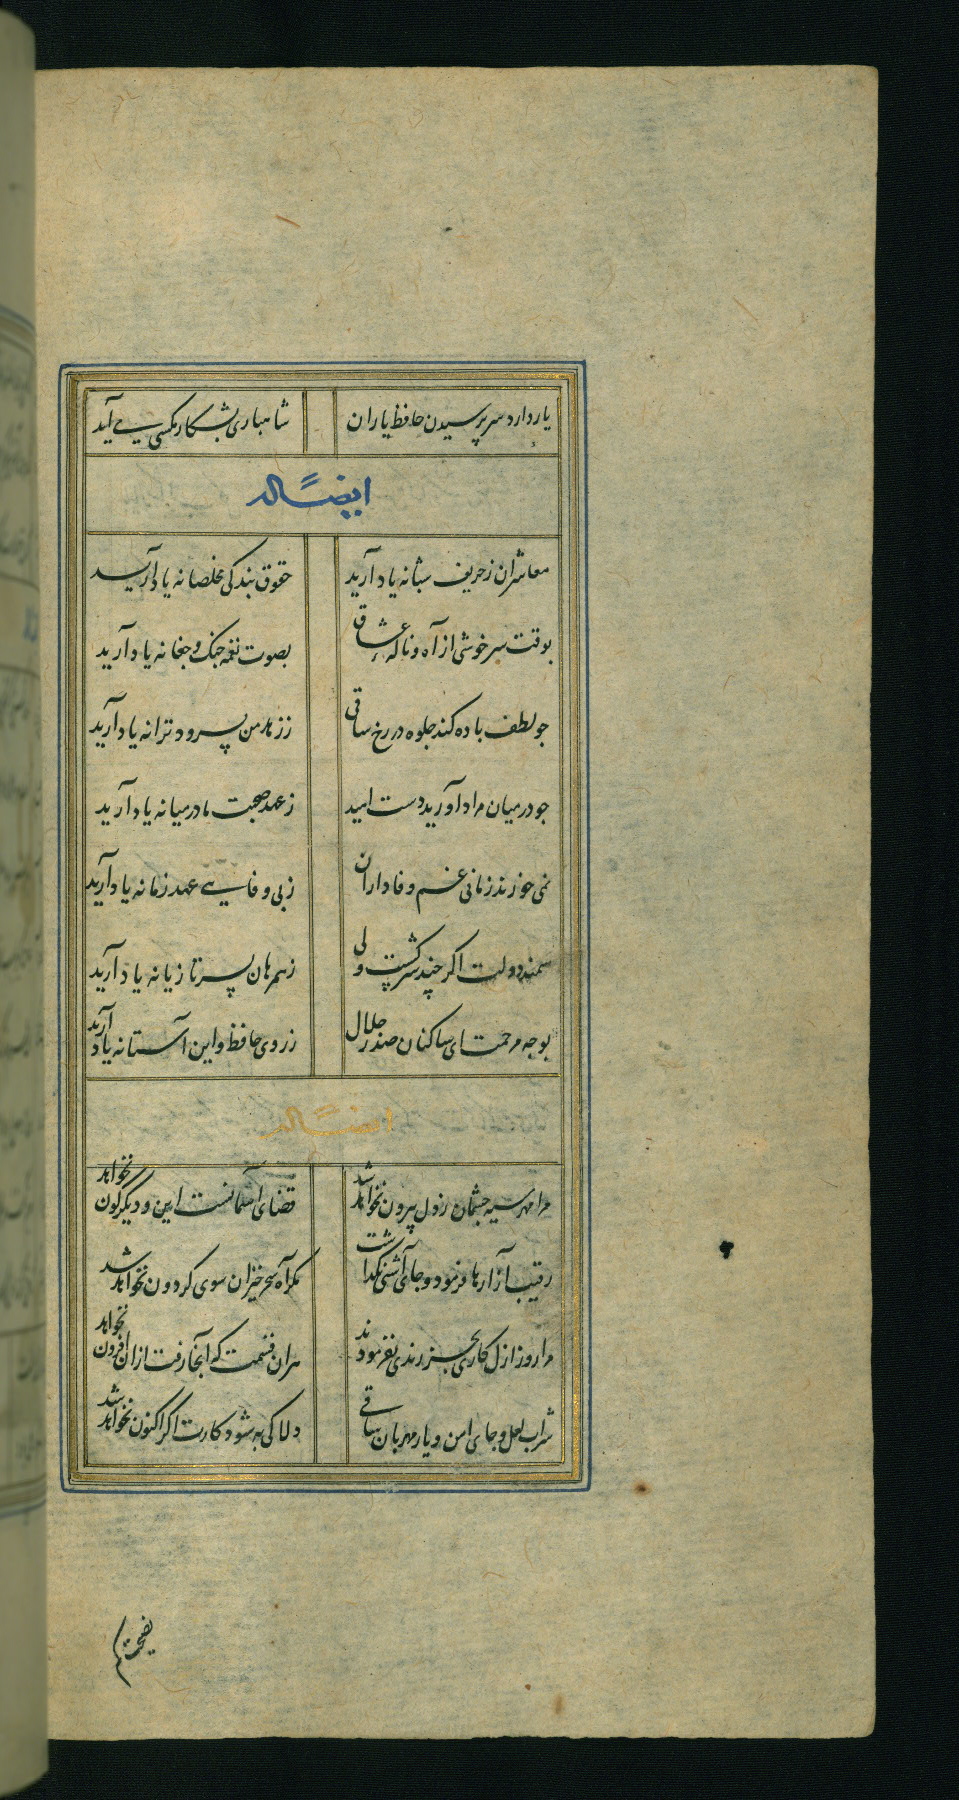 یار دارد سر پرسیدن حافظ یاران شاهبازی بشکار مکسی می آید
ایضاً له
معاشران ز حریف شبانه یاد آرید حقوق بندکی مخلصانه یاد آرید
بوقت سرخوشی از آه و ناله عشاق بصوت نغمه جنک و جغانه یاد آرید
جو لطف باده کند جلوه در رخ ساقی ز زهد من بسرود ترانه یاد آرید
جو در میان مراد آورید دست امید ز عهد صحبت ما در میانه یاد آرید
نمی خورند زمانی غم وفاداران ز بی وفایی عهد زمانه یاد آرید
سمند دولت اکر چند سرکشیست ولی ز همرهان بسر تازیانه یاد آرید
بوجه مرحمت ای ساکنان صدر جلال ز روی حافظ و این آستانه یاد آرید
ایضاً له
مرا مهر سیه جشمان ز دل بیرون نخواهد شد قضای آسمانست این و دیکرکون نخواهد
رقیب آزارها فرمود و جای آشتی نکذاشت مکر آه سحرخیزان سوی کردون نخواهد شد
مرا روز ازل کاری بجز رندی نفرمودند هر آن قسمت که آنجا رفت از آن افزون نخواهد
شراب لعل و جای امن و یار مهربان ساقی دلا کی به شود کارت اکر اکنون نخواهد شد
نصیحت کم